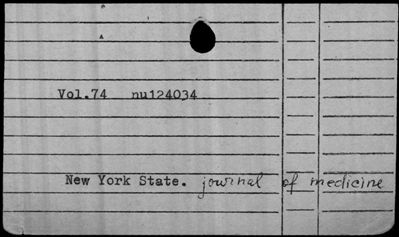 Vol.74 nu124034
New York State. journal of medicine